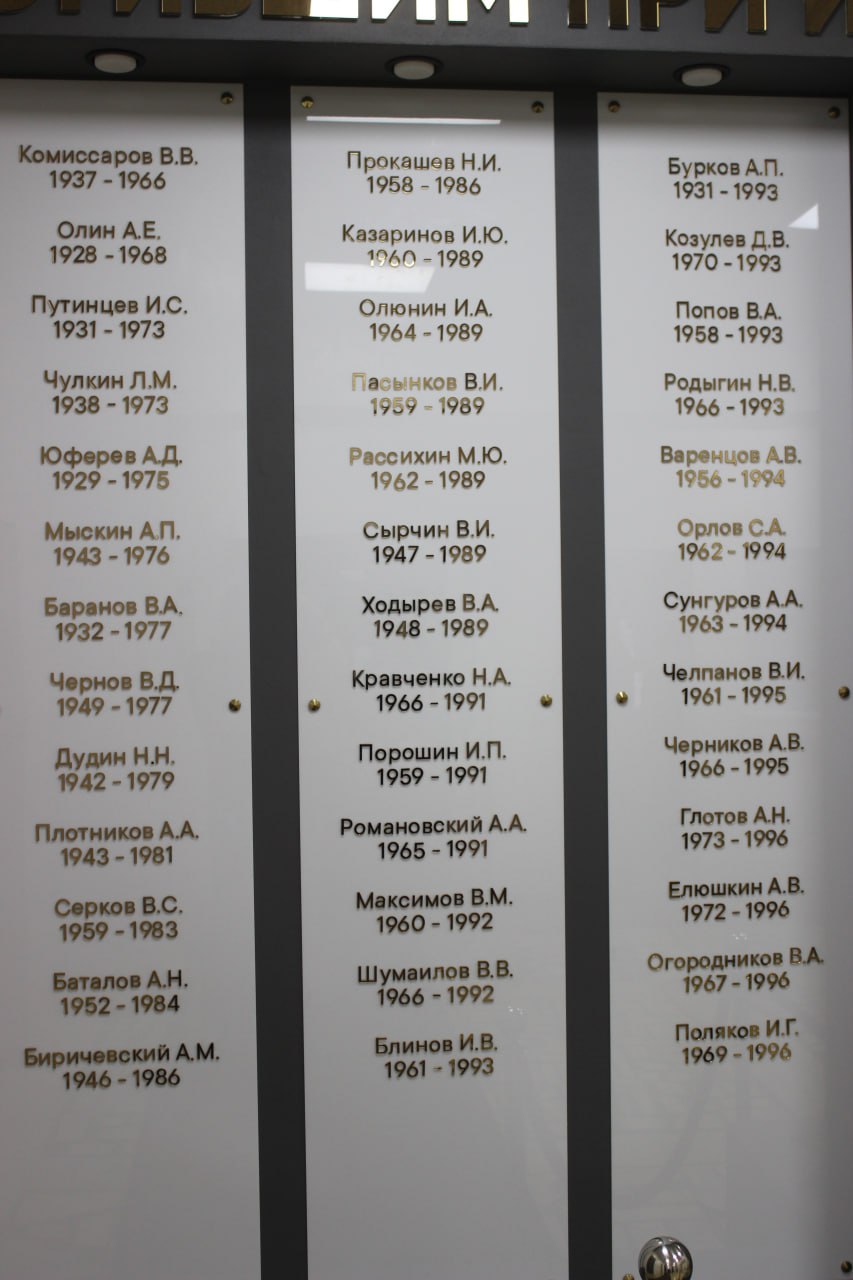 ПРИ
Комиссаров В.В.
1937 - 1966
Олин А.Е.
1928 - 1968
Путинцев И.С.
1931 - 1973
Чулкин Л.М.
1938 - 1973
Юферев А.Д.
1929 - 1975
Мыскин А.П.
1943 - 1976
Баранов В.А.
1932 - 1977
Чернов В.Д.
1949 - 1977
Дудин Н.Н.
1942 - 1979
Плотников А.А.
1943 - 1981
Серков В.С.
1959 - 1983
Баталов А.Н.
1952 - 1984
Биричевский А.М.
1946 - 1986
Прокашев Н.И.
1958 - 1986
Казаринов И.Ю.
1960 - 1989
Олюнин И.А.
1964 - 1989
Пасынков В.И.
1959 - 1989
Рассихин М.Ю.
1962 - 1989
Сырчин В.И.
1947 - 1989
Ходырев В.А.
1948 - 1989
Кравченко Н.А.
1966 - 1991
Порошин И.П.
1959 - 1991
Романовский А.А.
1965 - 1991
Максимов В.М.
1960 - 1992
Шумаилов В.В.
1966 - 1992
Блинов И.В.
1961 - 1993
Бурков А.П.
1931 - 1993
Козулев Д.В.
1970 - 1993
Попов В.А.
1958 - 1993
Родыгин Н.В.
1966 - 1993
Варенцов А.В.
1956 - 1994
Орлов С.А.
1962 - 1994
Сунгуров А.А.
1963 - 1994
Челпанов В.И.
1961 - 1995
Черников А.В.
1966 - 1995
Глотов А.Н.
1973 - 1996
Елюшкин А.В.
1972 - 1996
Огородников В.А.
1967 - 1996
Поляков И.Г.
1969 - 1996